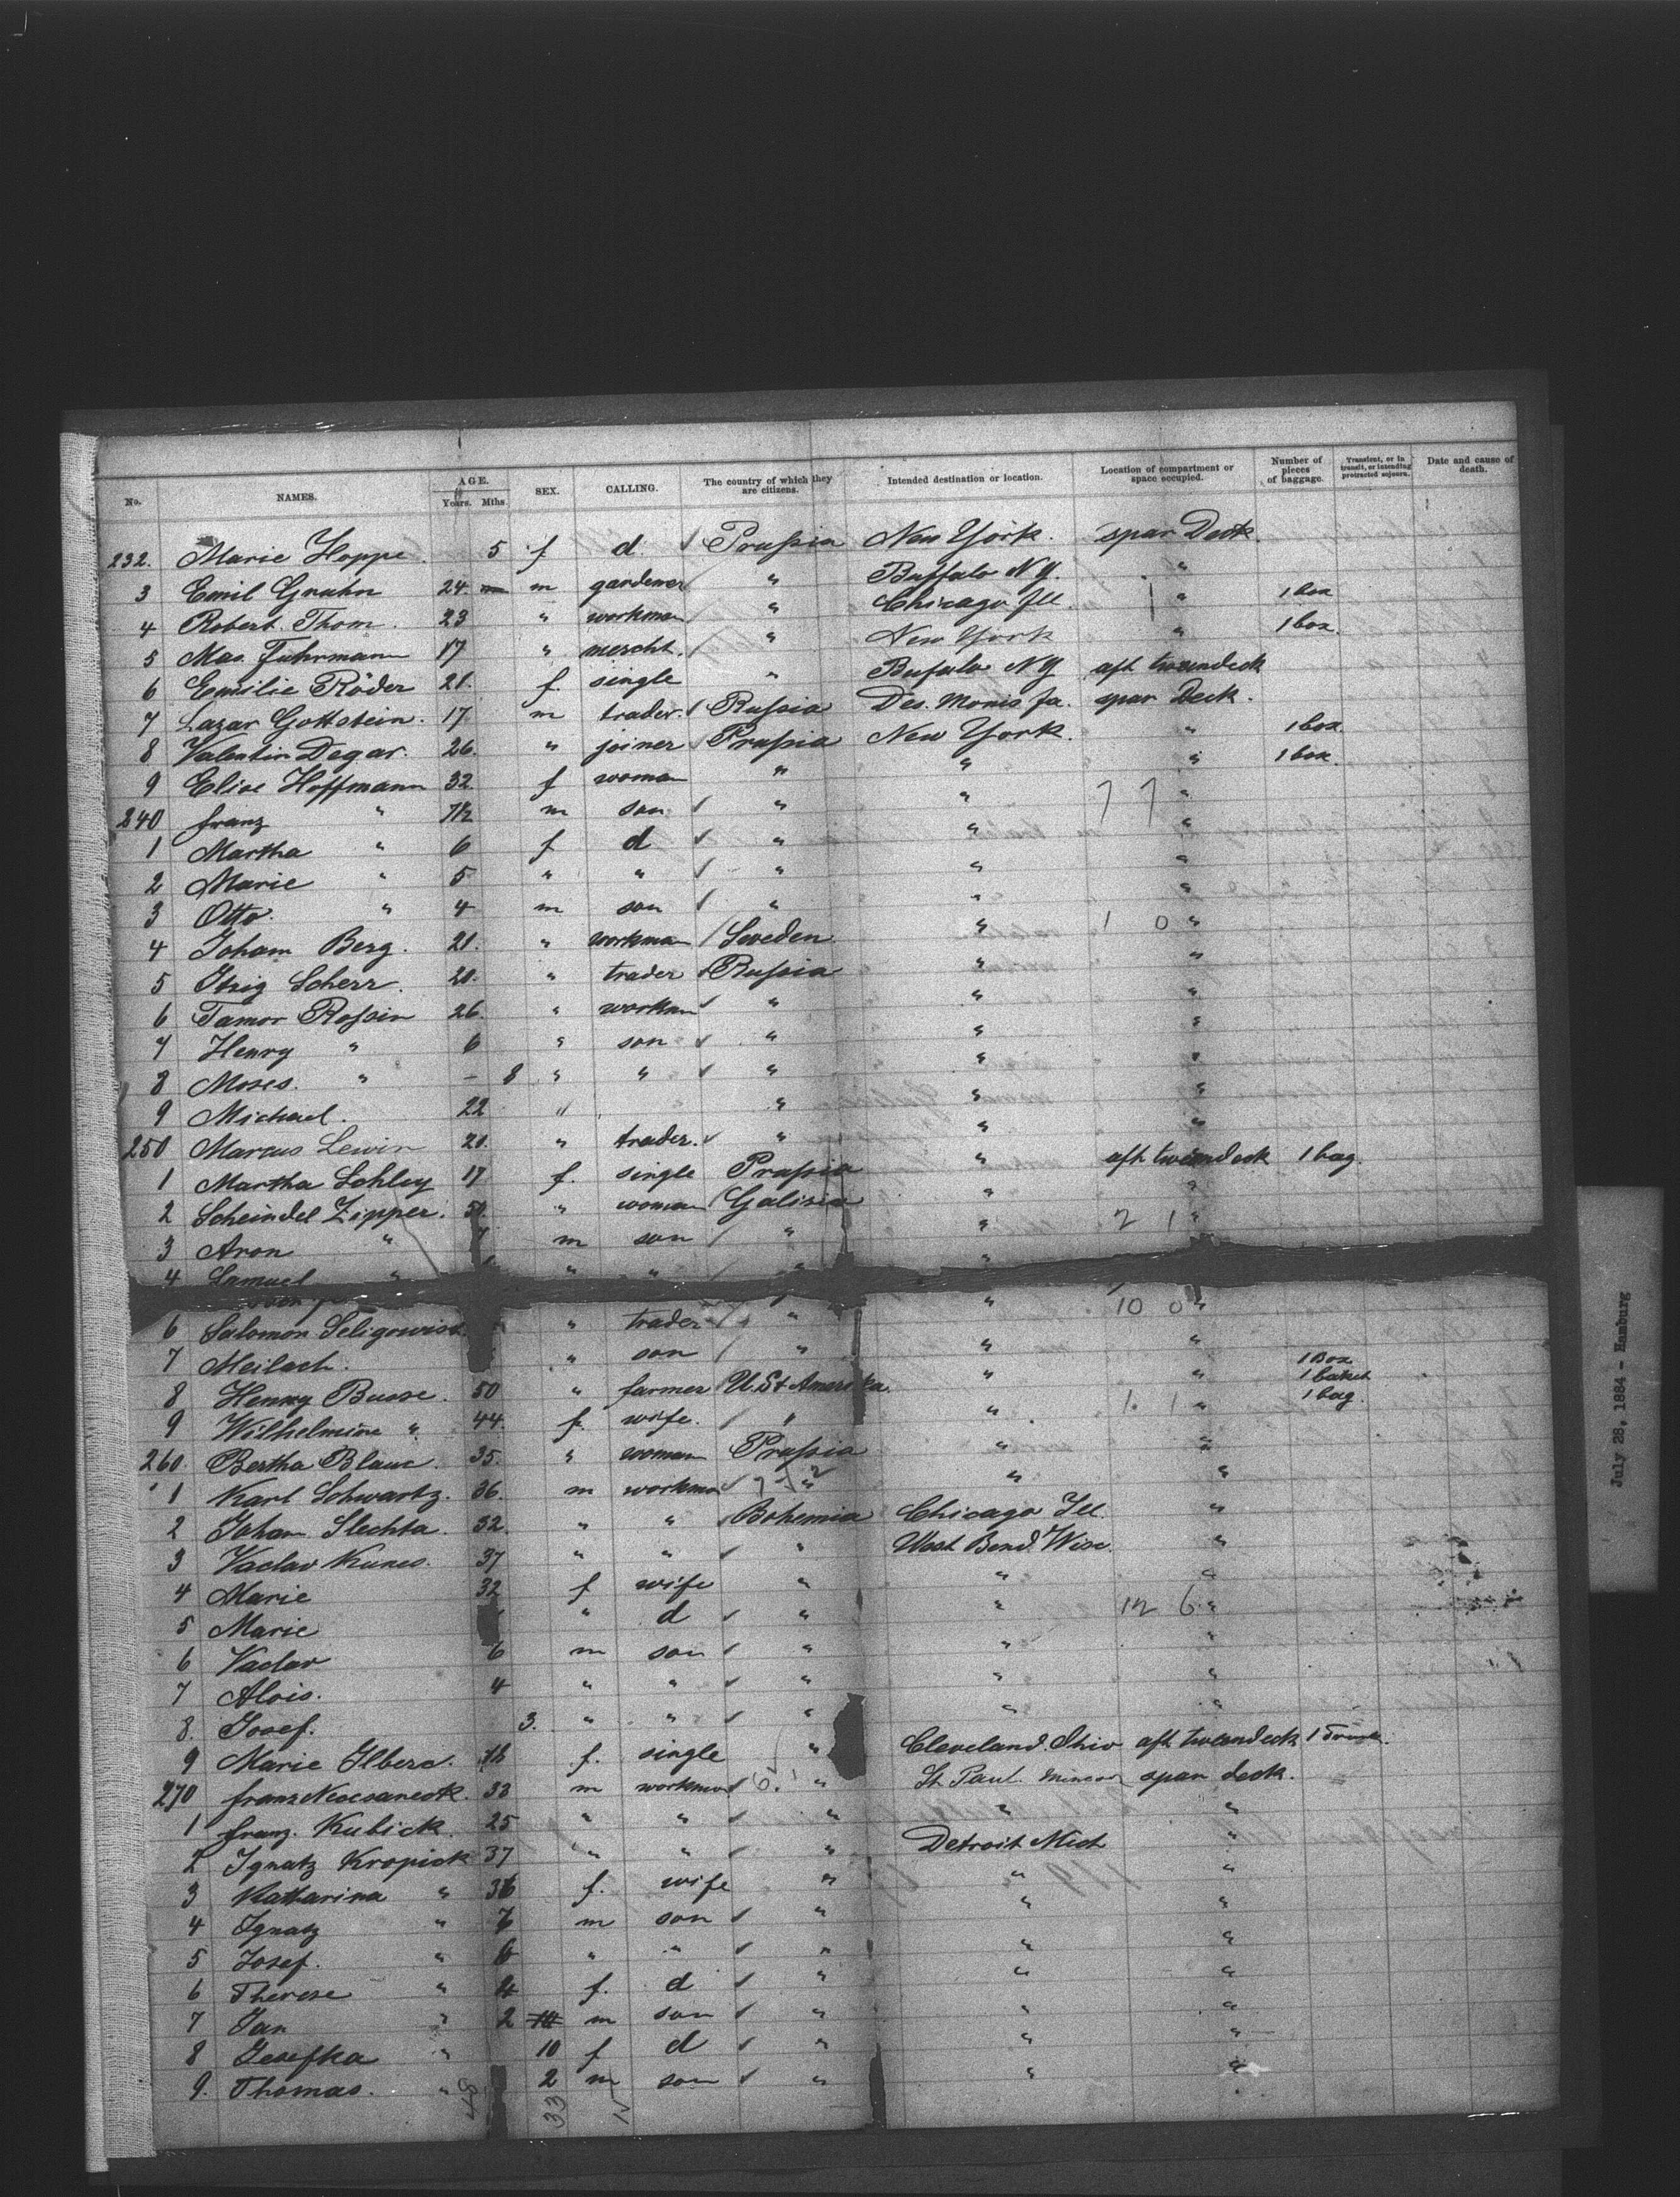 No. NAMES. AGE. Years. Mths. SEX. CALLING. The country of which they are citizens. Intended destination or location. Location of compartment or space occupied. Number of pieces of baggage. Transient, or in transit, or intending protracted sojourn. Date and cause of death.
232. Marie Hoppe. 5 f d. Prussia New York. spar Deck
3 Emil Gruhn 24 m gardener " Buffalo N Y. "
4 Robert Thom. 23 " workman " Chicago Ill. " 1 box
5 Max Fuhrmann 17 " mercht. " New York " 1 box.
6 Emilie Röder 21. f. single " Bufalo N Y aft tweendeck
7 Lazar Gottstein. 17 m trader. Russia Des. Monis Ja. spar Deck.
8 Valentin Degar. 26. " joiner Prussia New York. " 1 box
9 Elise Hoffmann 32 f woman " " " 1 box.
240 franz " 7 1/2 m son " " 7 7 "
1 Martha " 6 f d " " "
2 Marie " 5 " " " " "
3 Otto. " 4 m son " " "
4 Joham Berg. 21. " workman Sweden " 1 0 "
5 Itzig Scherr. 20. " trader Russia " "
6 Tamor Rossin 26. " workman " " "
7 Henry " 6 " son " " "
8 Moses. " - 8 " " " " "
9 Michael. 22 " " " "
250 Marcus Lewin 21. " trader. " " "
1 Martha Lehley 17 f. single Prussia " aft tweendeck 1 bag.
2 Scheindel Zipper. " woman Galisia " "
3 Aron " m son " " 2 1 "
4 Samuel " " " " "
" 10 0 "
6 Salomon " trader " "
7 Meilach. " son " " "
8 Henny Busse. 50 " farmer U. St Amerika. " " 1 Box 1 basket 1 bag
9 Wilhelmine " 44. f. wife. " " 1. 1 "
260. Bertha Blauc. 35. " woman Prussia " "
1 Karl Schwartz. 36. m workman " " "
2 Joham. Slechta. 32. " " Bohemia Chicago Ill. "
3 Vaclav Kunes. 37 " " " West Bend. Wisc. "
4 Marie 32 f wife " " "
5 Marie " d " " 12 6 "
6 Vaclav 6 m son " " "
7 Alois. 4 " " " " "
8. Josef. 3. " " " " "
9 Marie Ilberc. f. single " Cleveland. Ohio aft tweendeck 1 Trunk.
270 franz 33 m workman 6. " St Paul. spar deck.
1 franz. Kubick. 25 " " " " "
2 Ignatz Kropick 37 " " " Detroit Mich "
3 Katharina " 36 f. wife " " "
4 Ignatz " 7 m son " " "
5 Josef. " 6 " " " " "
6 Therese " 4 f. d " " "
7 Jan " 2 10 m son " " "
8 Josefka " 10 f d " " "
9. Thomas. " 2 m son " " "
48 33 15
July 28, 1884 - Hamburg